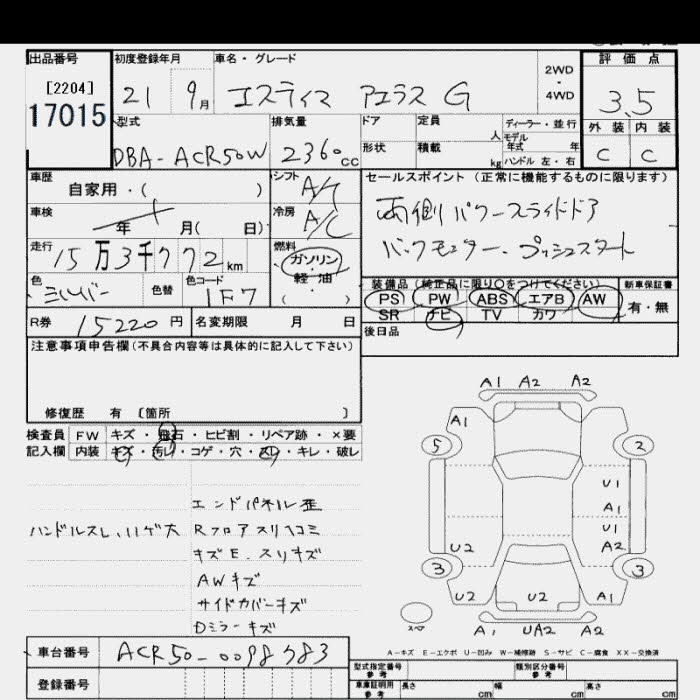 出品番号 初度登録年月 車名・グレード 2WD・4WD 評価点
[2204]
17015
21 9月 エスティマ アエラス G 3.5
型式 排気量 ドア 定員 人 ディーラー・並行 外装 内装
モデル年式 年
DBA-ACR50W 2360cc 形状 積載 kg ハンドル 左・右 C C
車歴 自家用・( ) シフト A/T セールスポイント (正常に機能するものに限ります)
車検 年 月( 日) 冷房 A/C 両側パワースライドドア
走行 15万3千772km 燃料 ガソリン・軽油・( ) バックモニター・プッシュスタート
色 シルバー 色替 色コード 1F7 装備品(純正品に限り○をつけてください) 新車保証書
PS PW ABS エアB AW 有・無
R券 15220円 名変期限 月 日 SR ナビ TV カワ
注意事項申告欄(不具合内容等は具体的に記入して下さい) 後日品
修復歴 有 〔箇所 〕
検査員 FW キズ・飛石・ヒビ割・リペア跡・×要
記入欄 内装 キズ・汚レ・コゲ・穴・スレ・キレ・破レ
エンドパネル歪
ハンドルスレ、ハゲ大 Rフロアスリヘコミ
キズE.スリキズ
AWキズ
サイドカバーキズ
Dミラーキズ
A1 A2 A2
A1
5 2
U1
A1
U1
U2 A2
3 3
U2 U2 A1
スペア A1 UA2 A2
A-キズ E-エクボ U-凹み W-補修跡 S-サビ C-腐食 XX-交換済
車台番号 ACR50-0098783
型式指定番号 参考 類別区分番号 参考
登録番号 車庫証明用 参考 長さ cm 幅 cm 高さ cm